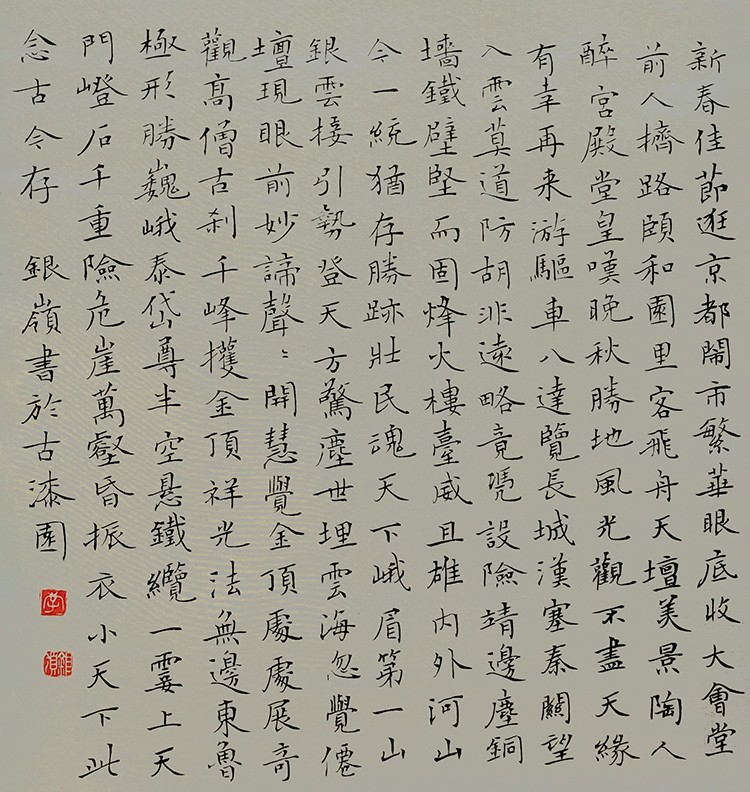 新春佳節逛京都鬧市繁華眼底收大會堂
前人擠路頤和園里客飛舟天壇美景陶人
醉宮殿堂皇嘆晚秋勝地風光觀不盡天緣
有幸再来游驅車八達覽長城漢塞秦關望
入雲莫道防胡非遠略竟憑設險靖邊塵銅
墻鐵壁堅而固烽火樓臺威且雄内外河山
今一統猶存勝跡壯民魂天下峨眉第一山
銀雲接引勢登天方驚塵世埋雲海忽覺僊
壇現眼前妙諦聲〻開慧覺金頂處處展奇
觀高僧古刹千峰擭金頂祥光法無邊東魯
極形勝巍峨泰岱尊半空悬鐵纜一霎上天
門嶝石千重險危崖萬壑昏振衣小天下此
念古今存 銀嶺書於古漆園